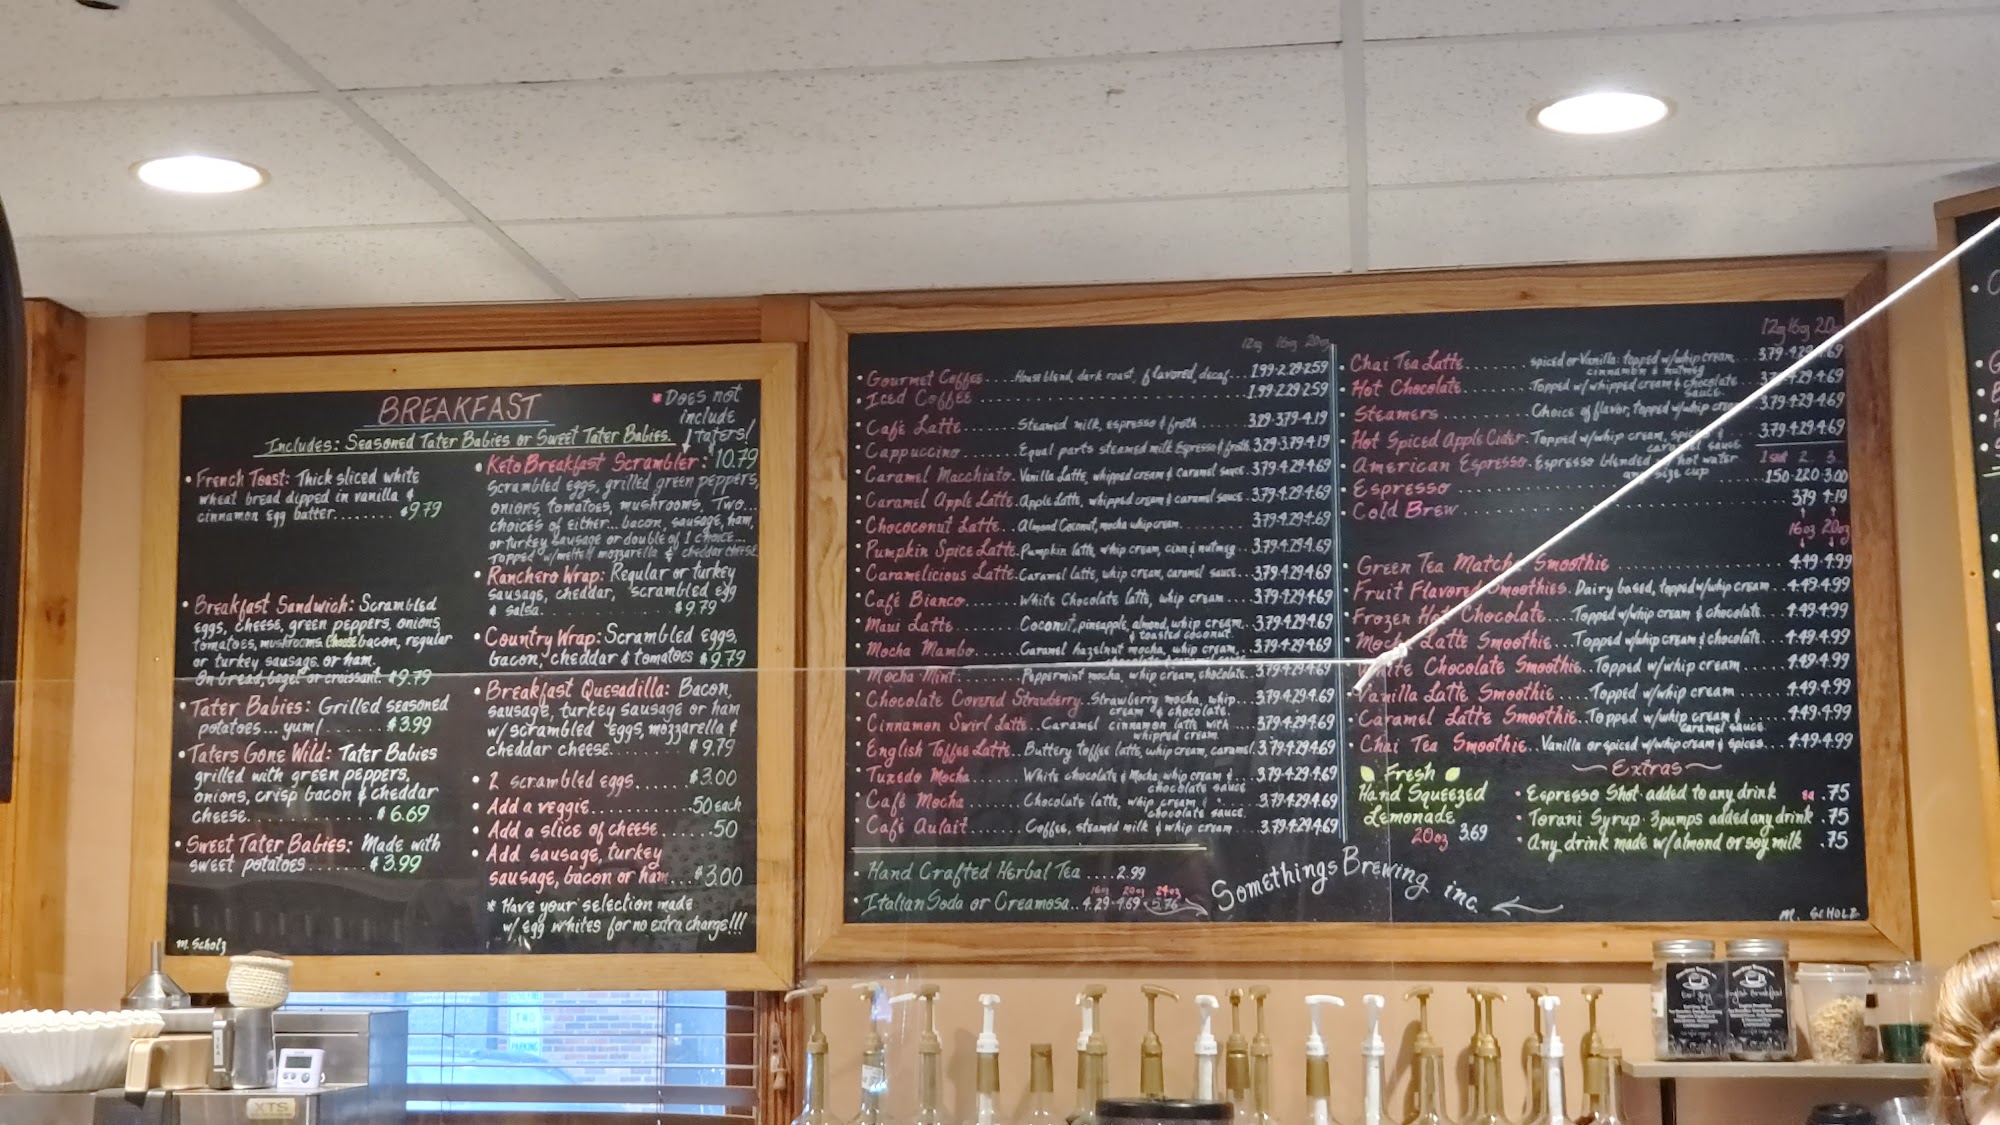 BREAKFAST
* Does not
include
taters!
Includes: Seasoned Tater Babies or Sweet Tater Babies.
• French Toast: Thick sliced white
wheat bread dipped in vanilla &
cinnamon egg batter........ $9.79
• Breakfast Sandwich: Scrambled
eggs, cheese, green peppers, onions,
tomatoes, mushrooms. Choose bacon, regular
or turkey sausage, or ham.
On bread, bagel or croissant. $9.79
• Tater Babies: Grilled seasoned
potatoes... yum! ....... $3.99
• Taters Gone Wild: Tater Babies
grilled with green peppers,
onions, crisp bacon & cheddar
cheese............ $6.69
• Sweet Tater Babies: Made with
sweet potatoes....... $3.99
M. Scholz
• Keto Breakfast Scrambler: 10.79
Scrambled eggs, grilled green peppers,
onions, tomatoes, mushrooms, Two...
choices of either... bacon, sausage, ham,
or turkey sausage or double of 1 choice...
Topped w/melted mozzarella & cheddar cheese
• Ranchero Wrap: Regular or turkey
sausage, cheddar, scrambled egg
& salsa............ $9.79
• Country Wrap: Scrambled eggs,
bacon, cheddar & tomatoes $9.79
• Breakfast Quesadilla: Bacon,
sausage, turkey sausage or ham
w/scrambled eggs, mozzarella &
cheddar cheese........ $9.79
• 2 scrambled eggs...... $3.00
• Add a veggie........ .50 each
• Add a slice of cheese...... .50
• Add sausage, turkey
sausage, bacon or ham.... $3.00
* Have your selection made
w/ egg whites for no extra charge!!!
12oz 16oz 20oz
• Gourmet Coffee.... House blend, dark roast, flavored, decaf... 1.99-2.29-2.59
• Iced Coffee 1.99-2.29-2.59
• Café Latte........ Steamed milk, espresso & froth 3.29-3.79-4.19
• Cappuccino........ Equal parts steamed milk Espresso & froth 3.29-3.79-4.19
• Caramel Macchiato. Vanilla Latte, whipped cream & caramel sauce. 3.79-4.29-4.69
• Caramel Apple Latte. Apple Latte, whipped cream & caramel sauce. 3.79-4.29-4.69
• Chococonut Latte.. Almond Coconut, mocha whip cream.... 3.79-4.29-4.69
• Pumpkin Spice Latte. Pumpkin latte, whip cream, cinn & nutmeg... 3.79-4.29-4.69
• Caramelicious Latte. Caramel latte, whip cream, caramel sauce... 3.79-4.29-4.69
• Café Bianco....... White Chocolate latte, whip cream........ 3.79-4.29-4.69
• Maui Latte........ Coconut, pineapple, almond, whip cream.... 3.79-4.29-4.69
& toasted coconut.
• Mocha Mambo..... Caramel hazelnut mocha, whip cream, 3.79-4.29-4.69
• Mocha Mint....... Peppermint mocha, whip cream, chocolate. 3.79-4.29-4.69
• Chocolate Covered Strawberry.. Strawberry mocha, whip... 3.79-4.29-4.69
cream & chocolate.
• Cinnamon Swirl Latte.. Caramel cinnamon latte with 3.79-4.29-4.69
whipped cream.
• English Toffee Latte.. Buttery toffee latte, whip cream, caramel. 3.79-4.29-4.69
• Tuxedo Mocha...... White chocolate & Mocha, whip cream & ... 3.79-4.29-4.69
chocolate sauce
• Café Mocha........ Chocolate latte, whip cream & .... 3.79-4.29-4.69
chocolate sauce.
• Café Aulait....... Coffee, steamed milk & whip cream.... 3.79-4.29-4.69
• Hand Crafted Herbal Tea .... 2.99
16oz 20oz 24oz
• Italian Soda or Creamosa.. 4.29-4.69-5.76
12oz 16oz 20oz
• Chai Tea Latte........ spiced or Vanilla: topped w/whip cream 3.79-4.29-4.69
cinnamon & nutmeg
• Hot Chocolate........ Topped w/whipped cream & chocolate 3.79-4.29-4.69
sauce.
• Steamers ........ Choice of flavor, topped w/whip cream 3.79-4.29-4.69
• Hot Spiced Apple Cider. Topped w/whip cream, spices & 3.79-4.29-4.69
caramel sauce
• American Espresso. Espresso blended w/ hot water
any size cup
• Espresso............ 1.50-2.20-3.00
• Cold Brew............ 3.79 4.19
16oz 20oz
• Green Tea Matcha Smoothie ............ 4.49-4.99
• Fruit Flavored Smoothies. Dairy based, topped w/whip cream.... 4.49-4.99
• Frozen Hot Chocolate.... Topped w/whip cream & chocolate. 4.49-4.99
• Mocha Latte Smoothie... Topped w/whip cream & chocolate.. 4.49-4.99
• White Chocolate Smoothie. Topped w/whip cream ....... 4.49-4.99
• Vanilla Latte Smoothie..... Topped w/whip cream ....... 4.49-4.99
• Caramel Latte Smoothie.. Topped w/whip cream & ..... 4.49-4.99
caramel sauce.
• Chai Tea Smoothie.. Vanilla or spiced w/whip cream & spices... 4.49-4.99
Fresh
Hand Squeezed
Lemonade
20oz 3.69
~Extras~
• Espresso Shot- added to any drink .75
• Torani Syrup- 3 pumps added any drink .75
• Any drink made w/almond or soy milk .75
Somethings Brewing inc.
M. SCHOLZ
Earl Grey
English Breakfast
XTS
TWO
PARKING